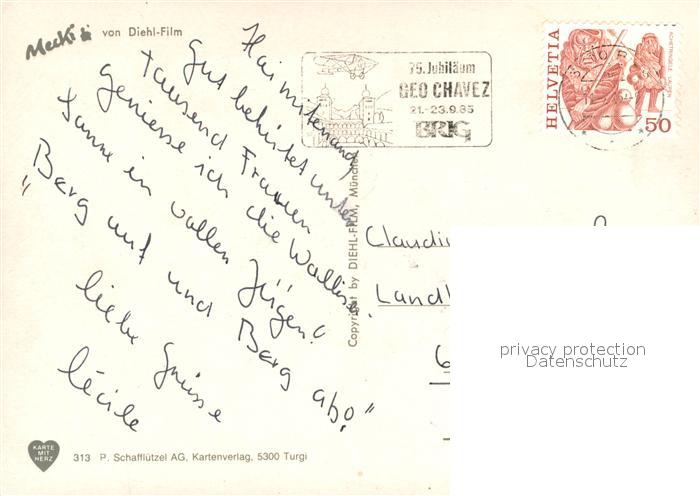 Mecki von Diehl-Film
Hoi mitenand
Gut behütet unter
tausend Frauen
geniesse ich die Walliser
tanne in vollen Zügen!
"Berg auf und Berg ab!"
liebe Grüsse
Cécile
75. Jubiläum
GEO CHAVEZ
21.-23.9.85
BRIG
HELVETIA
50
Copyright by DIEHL-FILM, München
Claudi
Landl
6
privacy protection
Datenschutz
KARTE
MIT
HERZ
313 P. Schafflützel AG, Kartenverlag, 5300 Turgi